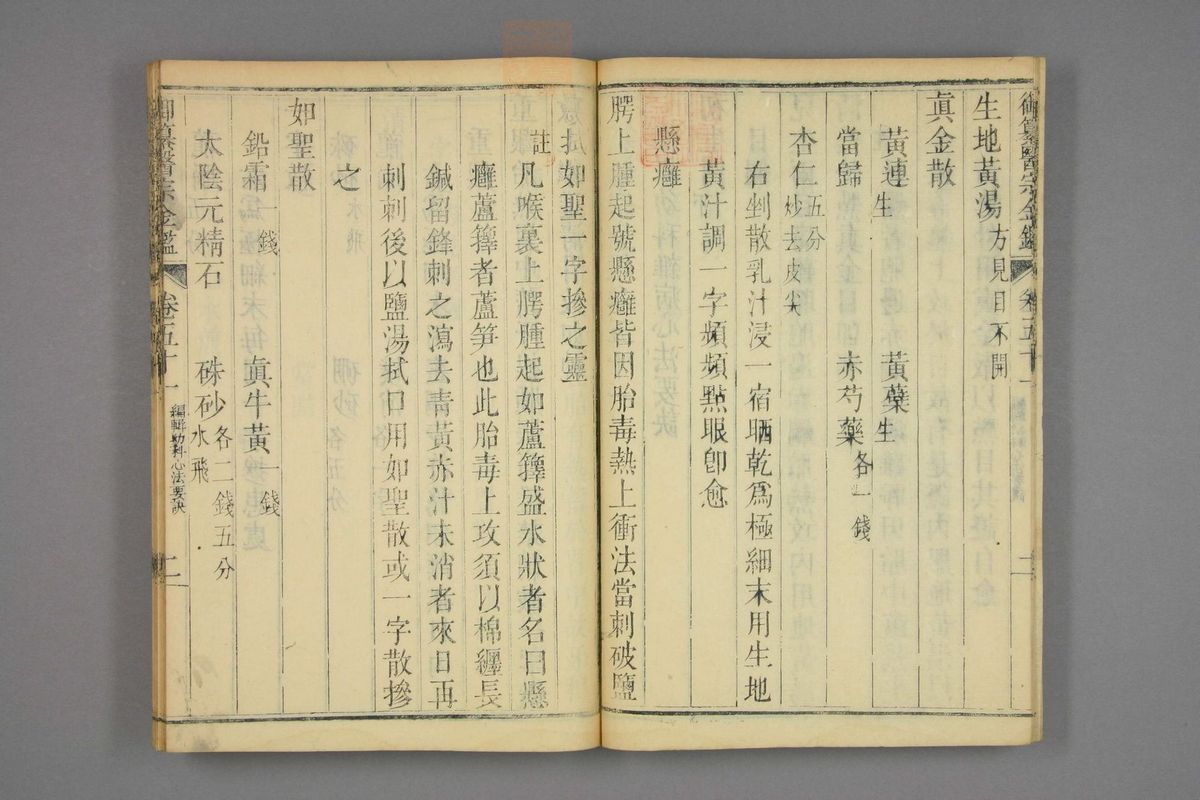 御纂醫宗金鑑 卷五十
生地黃湯 方見目不開
眞金散
黃連生 黃蘗生
當歸 赤芍藥各一錢
杏仁五分炒去皮尖
右剉散乳汁浸一宿晒乾爲極細末用生地
黃汁調一字頻頻點眼卽愈
懸癰
腭上腫起號懸癰皆因胎毒熱上衝法當刺破鹽
湯拭如聖一字摻之靈
註凡喉裏上腭腫起如蘆籜盛水狀者名曰懸
癰蘆籜者蘆笋也此胎毒上攻須以棉纏長
鍼留鋒刺之瀉去青黃赤汁未消者來日再
刺刺後以鹽湯拭口用如聖散或一字散摻
之
如聖散
鉛霜一錢 眞牛黃一錢
太陰元精石 硃砂水飛各二錢五分
御纂醫宗金鑑 卷五十 編輯幼科心法要訣 二